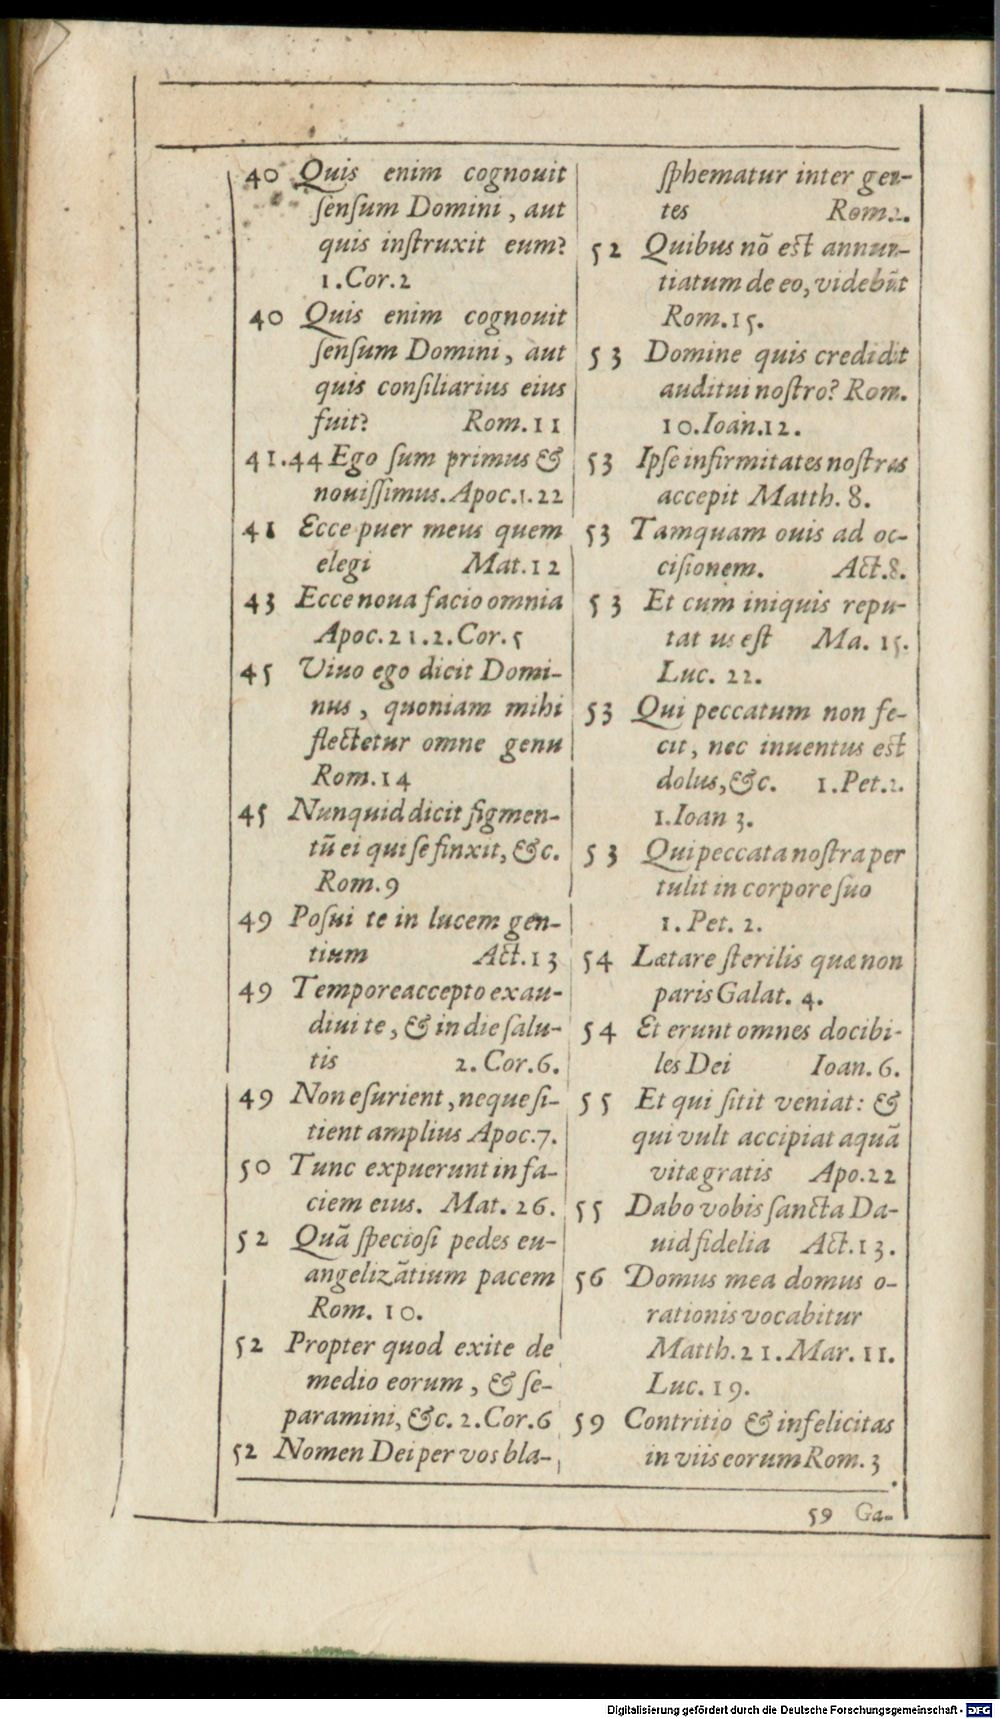 40 Quis enim cognouit
ſenſum Domini, aut
quis inſtruxit eum?
1.Cor.2
40 Quis enim cognouit
ſenſum Domini, aut
quis conſiliarius eius
fuit? Rom.11
41.44 Ego ſum primus &
nouiſſimus. Apoc.1.22
41 Ecce puer meus quem
elegi Mat.12
43 Ecce noua facio omnia
Apoc.21.2.Cor.5
45 Viuo ego dicit Domi-
nus, quoniam mihi
flectetur omne genu
Rom.14
45 Nunquid dicit figmen-
tū ei qui ſe finxit, &c.
Rom.9
49 Poſui te in lucem gen-
tium Act.13
49 Tempore accepto exau-
diui te, & in die ſalu-
tis 2. Cor.6.
49 Non eſurient, neque ſi-
tient amplius Apoc.7.
50 Tunc expuerunt in fa-
ciem eius. Mat. 26.
52 Quā ſpecioſi pedes eu-
angelizātium pacem
Rom. 10.
52 Propter quod exite de
medio eorum, & ſe-
paramini, &c. 2.Cor.6
52 Nomen Dei per vos bla-
ſphematur inter gen-
tes Rom.2.
52 Quibus nō est annun-
tiatum de eo, videbūt
Rom.15.
53 Domine quis credidit
auditui noſtro? Rom.
10.Ioan.12.
53 Ipſe infirmitates noſtras
accepit Matth. 8.
53 Tamquam ouis ad oc-
ciſionem. Act.8.
53 Et cum iniquis repu-
tat us eſt Ma. 15.
Luc. 22.
53 Qui peccatum non fe-
cit, nec inuentus est
dolus, &c. 1.Pet.2.
1.Ioan 3.
53 Qui peccata noſtra per
tulit in corpore ſuo
1. Pet. 2.
54 Lætare ſterilis quæ non
paris Galat. 4.
54 Et erunt omnes docibi-
les Dei Ioan. 6.
55 Et qui ſitit veniat: &
qui vult accipiat aquā
vitæ gratis Apo.22
55 Dabo vobis ſancta Da-
uid fidelia Act.13.
56 Domus mea domus o-
rationis vocabitur
Matth.21.Mar.11.
Luc.19.
59 Contritio & infelicitas
in viis eorum Rom. 3
59 Ga-
Digitalisierung gefördert durch die Deutsche Forschungsgemeinschaft - DFG